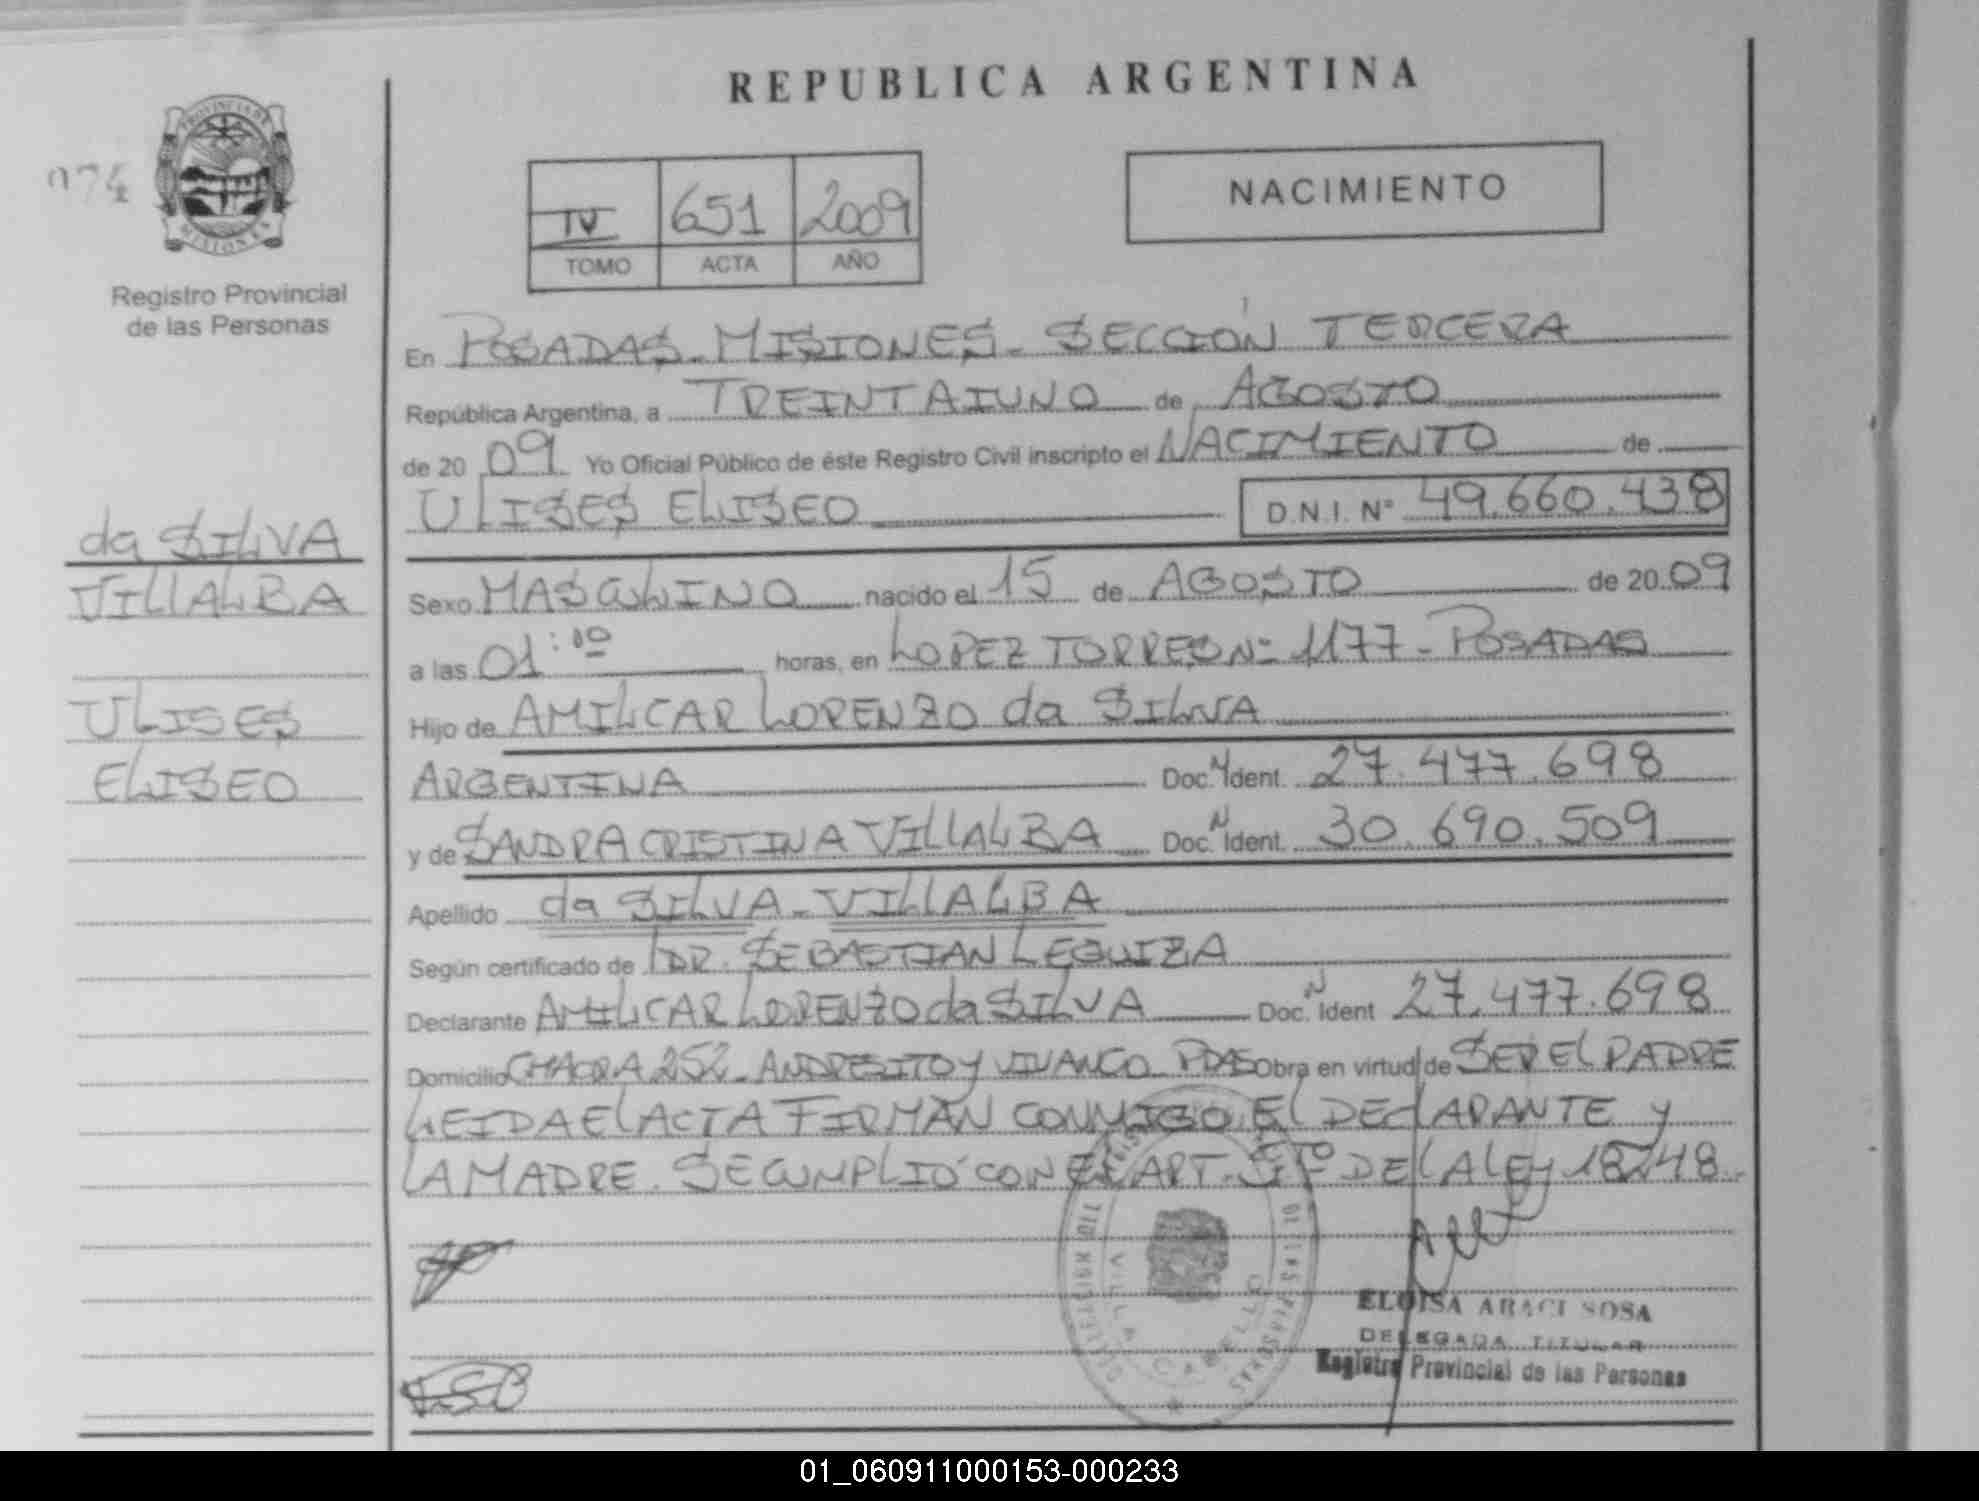 REPUBLICA ARGENTINA
PROVINCIA DE
MISIONES
974
Registro Provincial
de las Personas
IV 651 2009
TOMO ACTA AÑO
NACIMIENTO
da SILVA
VILLALBA
ULISES
ELISEO
En POSADAS - MISIONES - SECCIÓN TERCERA
República Argentina, a TREINTAIUNO de AGOSTO
de 20 09 Yo Oficial Público de éste Registro Civil inscripto el NACIMIENTO de
ULISES ELISEO D.N.I. Nº 49.660.438
Sexo MASCULINO nacido el 15 de AGOSTO de 20 09
a las 01:10 horas, en LOPEZ TORRES Nº 1177 - POSADAS
Hijo de AMILCAR LORENZO da SILVA
ARGENTINA Doc. N Ident. 27.477.698
y de SANDRA CRISTINA VILLALBA Doc. N Ident. 30.690.509
Apellido da SILVA - VILLALBA
Según certificado de DR. SEBASTIAN LEGUIZA
Declarante AMILCAR LORENZO da SILVA Doc. N Ident 27.477.698
Domicilio CHACRA 252 - ANDRESITO Y VIVANCO PDAS Obra en virtud de SER EL PADRE
LEIDA EL ACTA FIRMAN CONMIGO EL DECLARANTE Y
LA MADRE. SE CUMPLIÓ CON EL ART. DE LA LEY 18248
VILLA CABELLO
ELOISA ARACI SOSA
DELEGADA TITULAR
Registro Provincial de las Personas
01_060911000153-000233